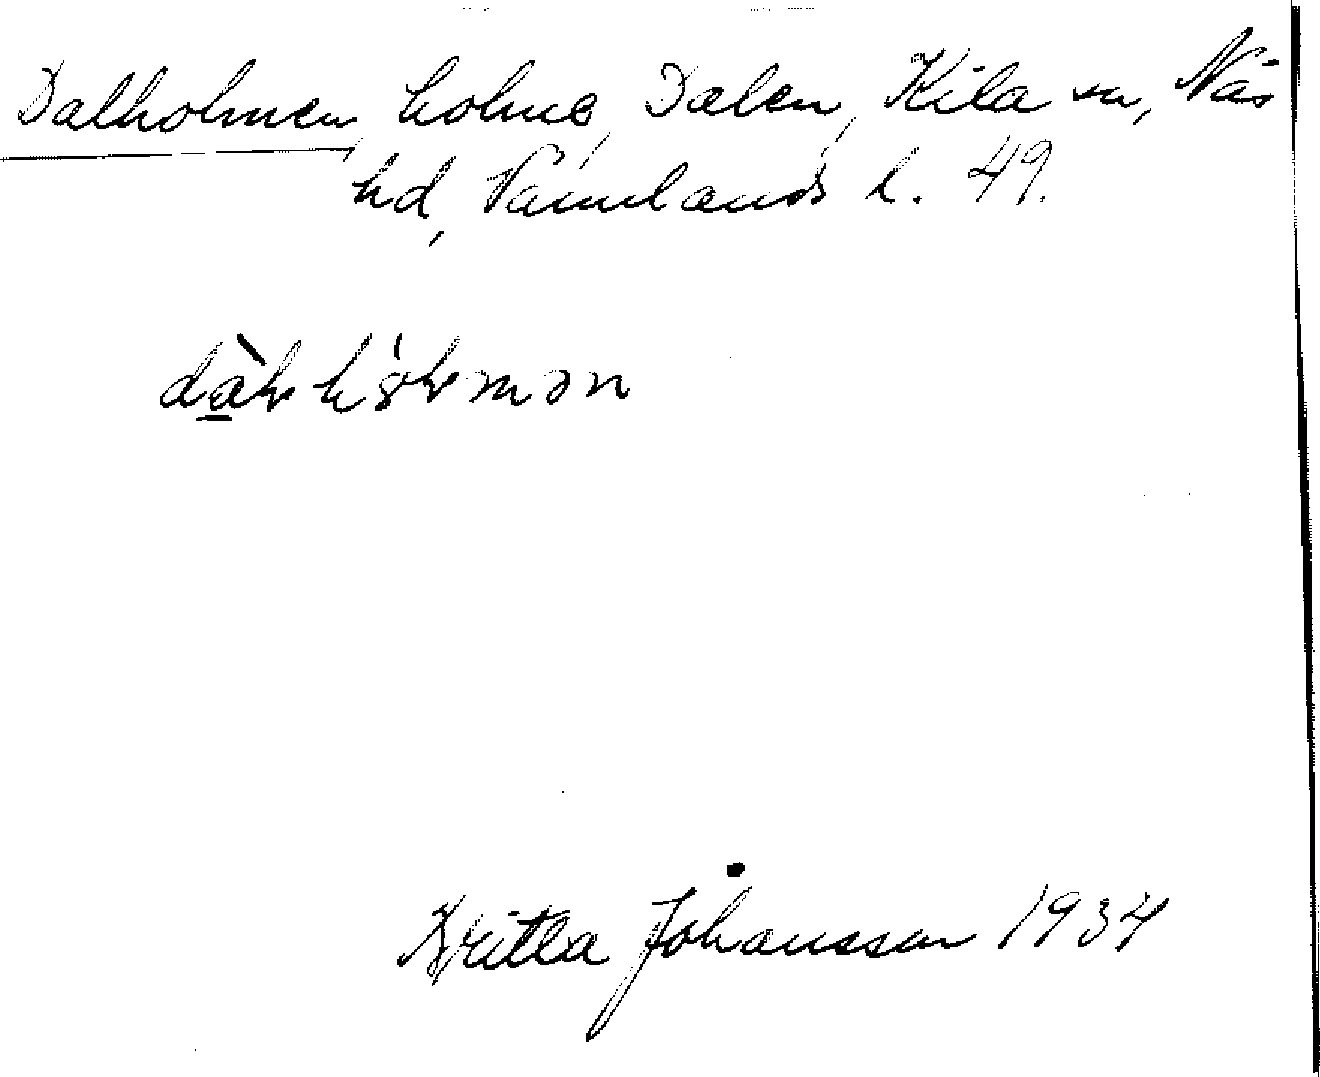 Dalholmen, holme, Dalen, Kila sn, Näs
hd, Värmlands l. 49.
Britta Johansson 1934